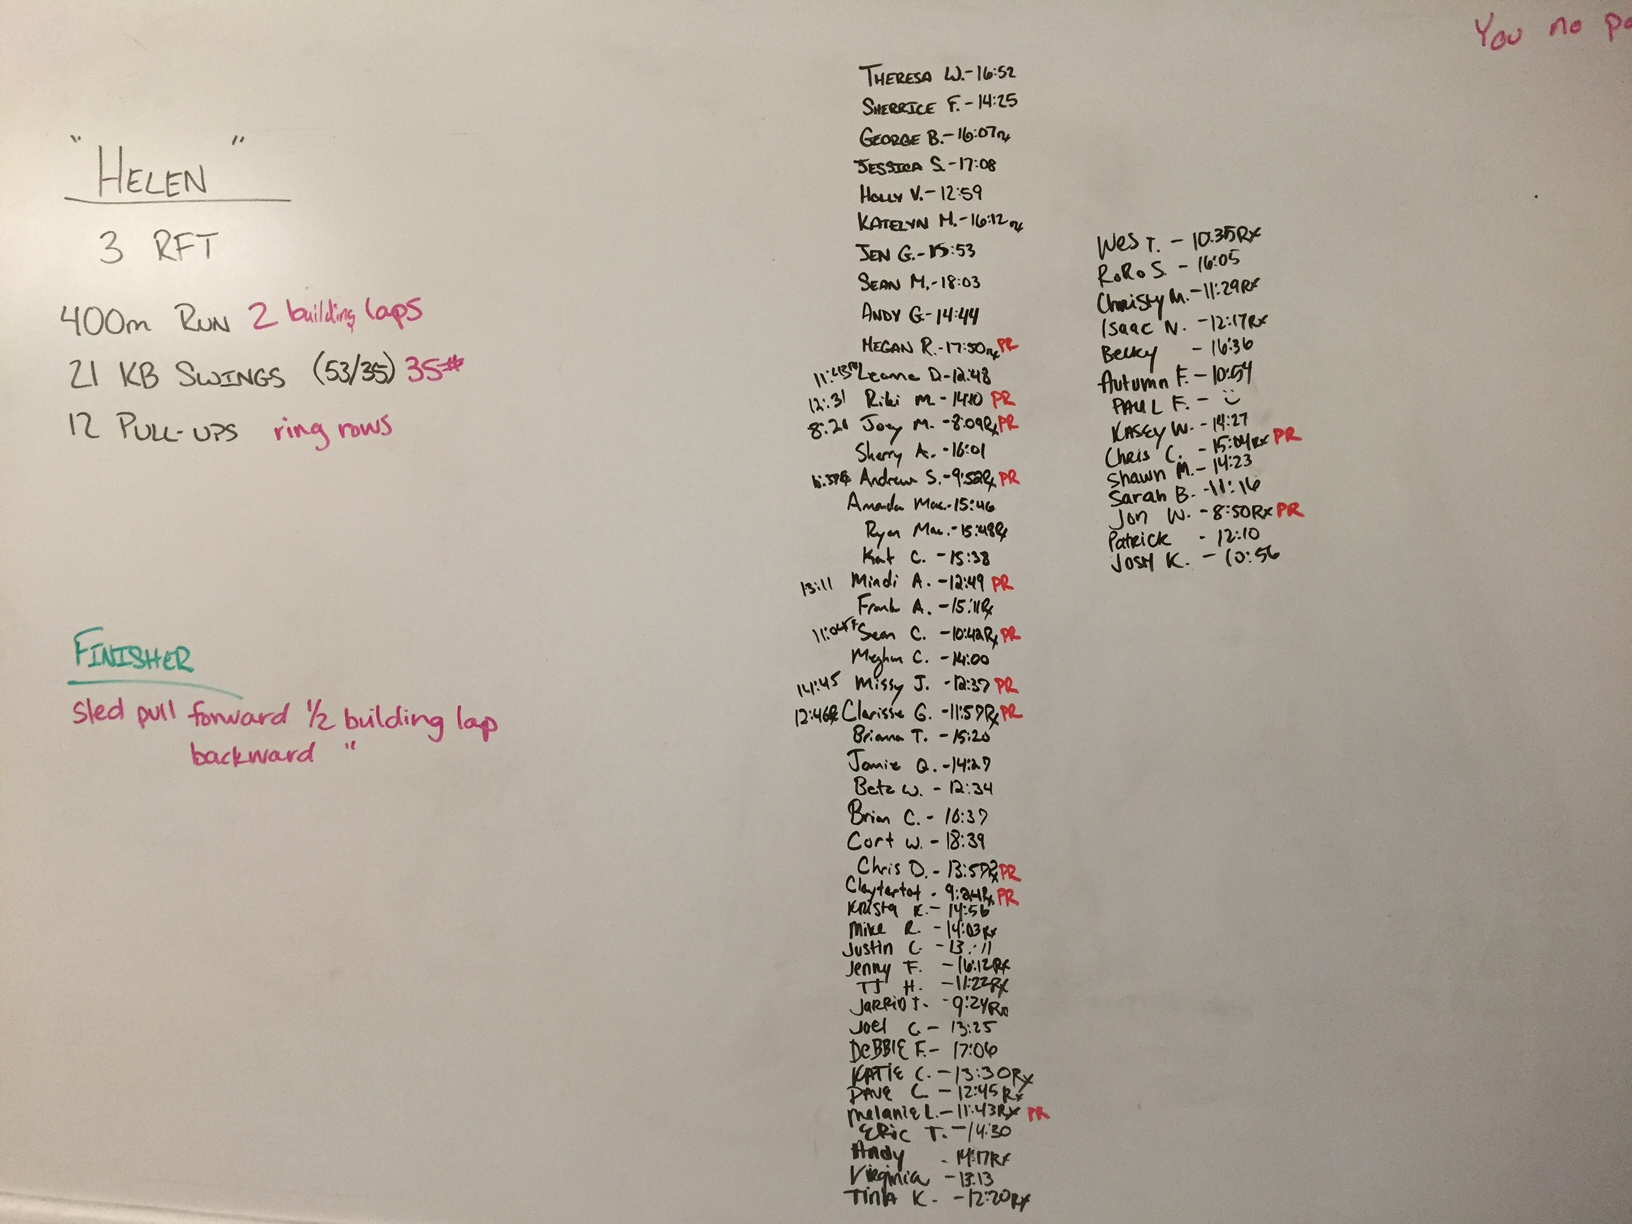 You no
"HELEN"
3 RFT
400m RUN 2 building laps
21 KB SWINGS (53/35) 35#
12 PULL-UPS ring rows
FINISHER
sled pull forward 1/2 building lap
backward "
THERESA W.-16:52
SHERRICE F.-14:25
GEORGE B.-16:07rx
JESSICA S.-17:08
HOLLY V.-12:59
KATELYN M.-16:12rx
JEN G.-15:53
SEAN M.-18:03
ANDY G-14:44
MEGAN R.-17:50rx PR
Leanne D-12:48
12:31 Riki M.-14:10 PR
8:21 Joey M.-8:09Rx PR
Sherry A.-16:01
Andrew S.-9:52Rx PR
Amanda Mac.-15:46
Ryan Mac.-15:48Rx
Kat C.-15:38
13:11 Mindi A.-12:49 PR
Frank A.-15:11Rx
Sean C.-10:42Rx PR
Meghan C.-14:00
14:45 Missy J.-12:37 PR
12:46Rx Clarisse G.-11:57Rx PR
Brianna T.-15:20
Jamie Q.-14:27
Betz W.-12:34
Brian C.-16:37
Cort W.-18:39
Chris D.-13:57Rx PR
Claytertot-9:24Rx PR
Krista K.-14:56
Mike R.-14:03Rx
Justin C-13:11
Jenny F.-16:12Rx
TJ H.-11:22Rx
JARRID T.-9:24Rx
Joel C-13:25
DEBBIE F.-17:06
KATIE C.-13:30Rx
DAVE C-12:45Rx
Melanie L.-11:43Rx PR
ERIC T.-14:30
Andy-14:17Rx
Virginia-13:13
TINA K.-12:20Rx
Wes T.-10:35Rx
RoRo S.-16:05
Christy M.-11:29Rx
Isaac N.-12:17Rx
Becky-16:36
Autumn F.-10:54
PAUL F.-
KASEY W-14:27
Chris C.-15:04Rx PR
Shawn M.-14:23
Sarah B.-11:16
Jon W.-8:50Rx PR
Patrick-12:10
JOSH K.-10:56